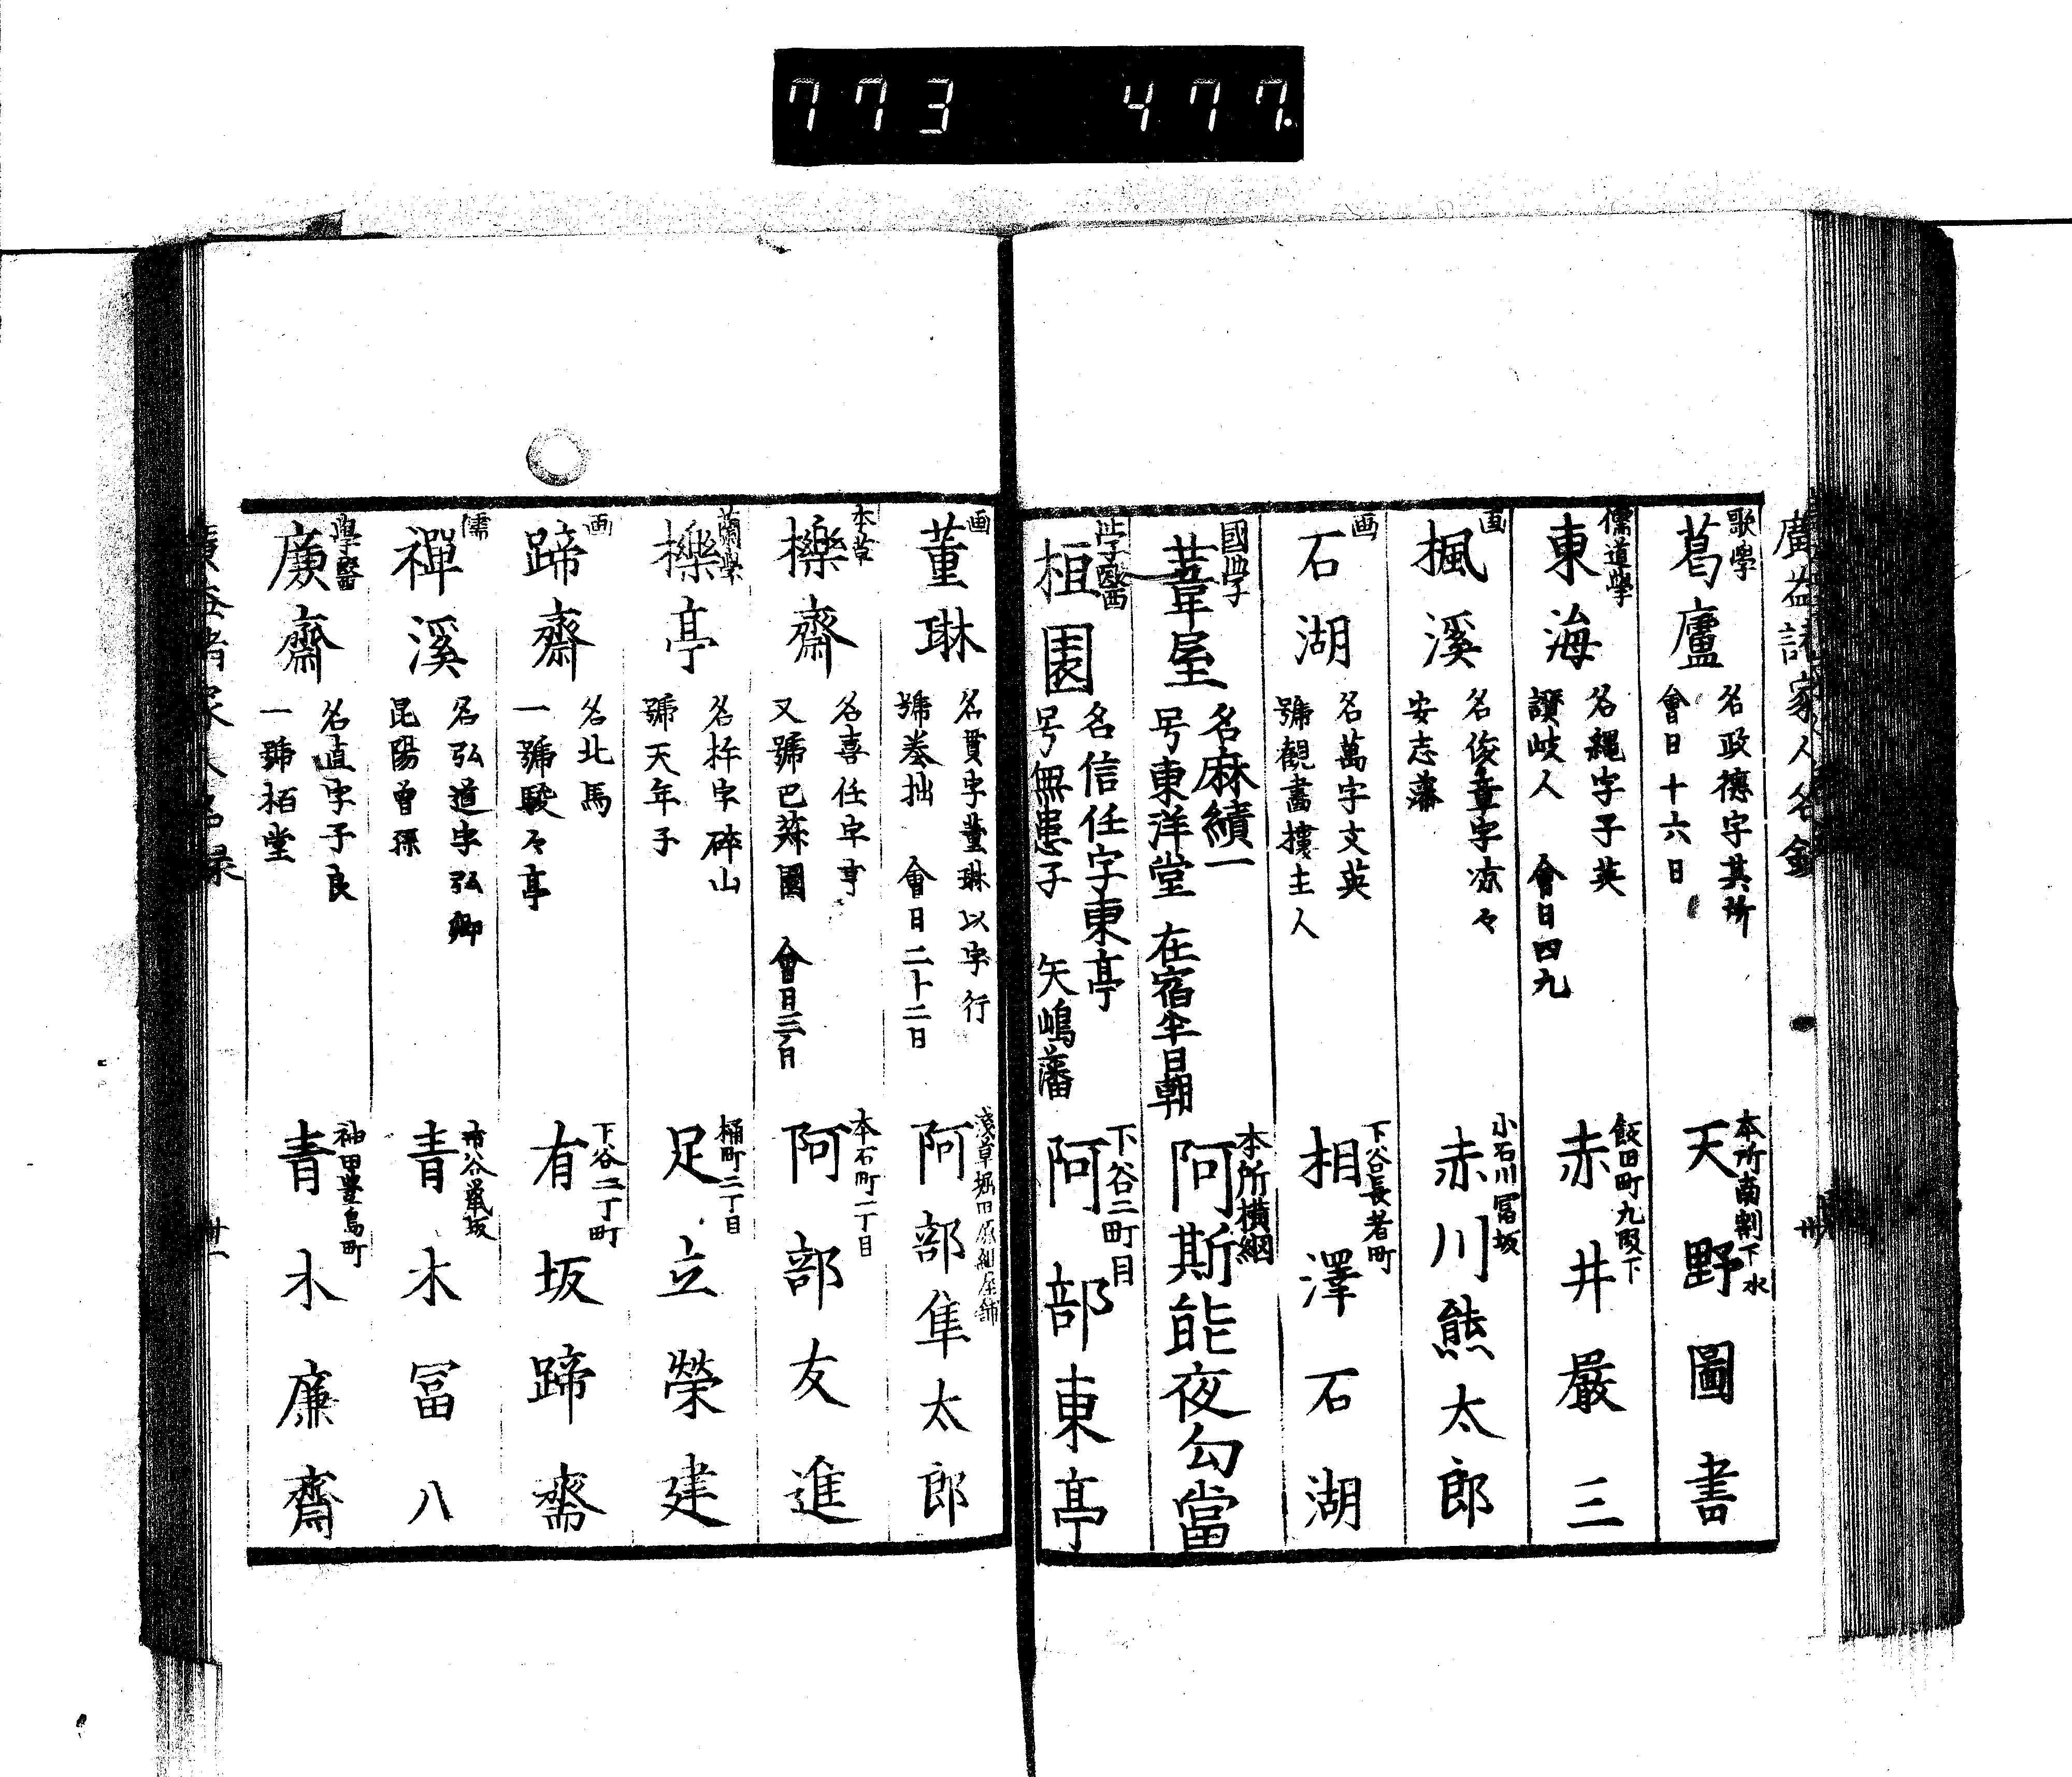 773 477.
廣益諸家人名録
卅
歌學
葛廬
名政德字其所
會日十六日
本所南割下水
天野圖書
儒道學
東海
名繩字子英
讃岐人 會日四九
飯田町九段下
赤井嚴三
画
楓溪
名俊章字凉々
安志藩
小石川冨坂
赤川熊太郎
画
石湖
名萬字文英
號觀畵樓主人
下谷長者町
相澤石湖
國學
葦屋
名麻績一
号東洋堂 在宿半日朝
本所横網
阿斯能夜勾當
学醫
桓園
名信任字東亭
号無患子 矢嶋藩
下谷二町目
阿部東亭
画
董琳
名貫字董琳以字行
號養拙 會日二十二日
淺草堀田原組屋鋪
阿部隼太郎
本草
櫟齋
名喜任字亨
又號巴菽園 會日三ノ日
本石町一丁目
阿部友進
蘭學
櫟亭
名杵字碎山
號天年子
桶町二丁目
足立榮建
画
蹄齋
名北馬
一號駿々亭
下谷二丁町
有坂蹄齋
儒
禪溪
名弘道字弘卿
昆陽曾孫
市谷鼠坂
青木冨八
學醫
廉齋
名直字子良
一號栢堂
神田豊島町
青木廉齋
廣益諸家人名録
卅一